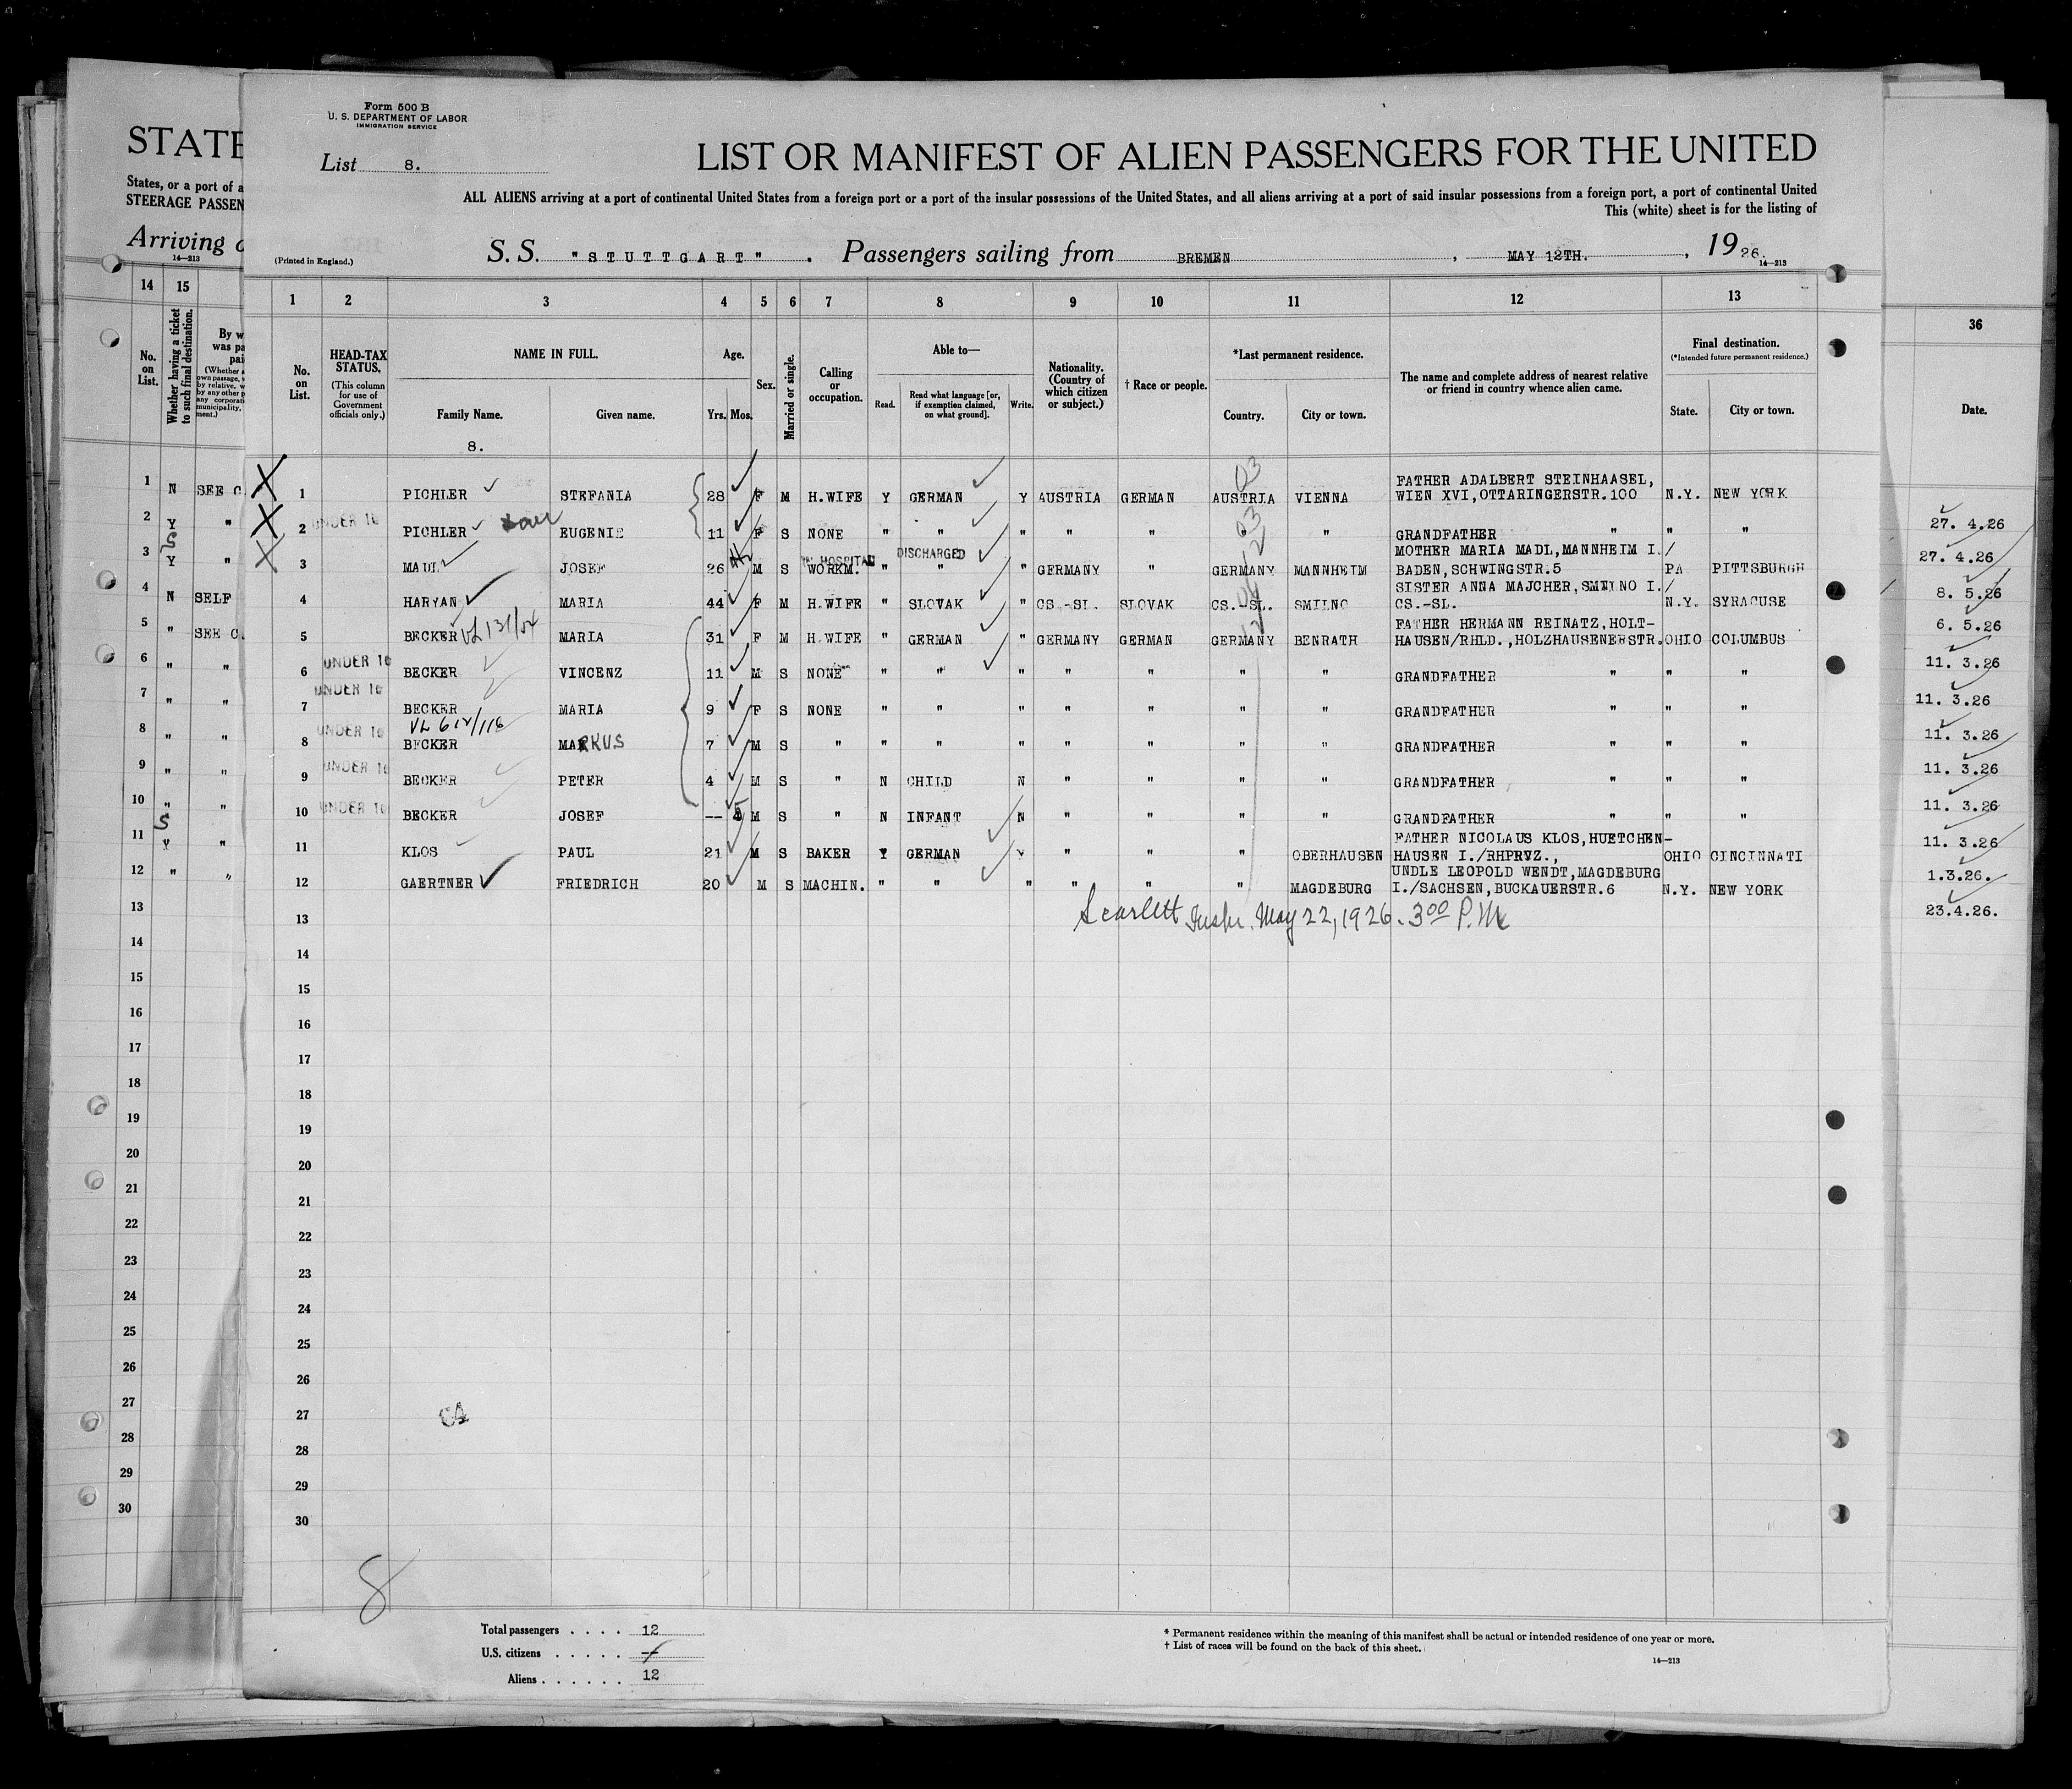 Form 500 B
U. S. DEPARTMENT OF LABOR
IMMIGRATION SERVICE
List 8.
LIST OR MANIFEST OF ALIEN PASSENGERS FOR THE UNITED
ALL ALIENS arriving at a port of continental United States from a foreign port or a port of the insular possessions of the United States, and all aliens arriving at a port of said insular possessions from a foreign port, a port of continental United
This (white) sheet is for the listing of
(Printed in England.)
S. S. "STUTTGART". Passengers sailing from BREMEN, MAY 12TH., 1926.
14—213
1 2 3 4 5 6 7 8 9 10 11 12 13
No. on List.
HEAD-TAX STATUS.
(This column for use of Government officials only.)
NAME IN FULL.
Family Name. Given name.
8.
Age.
Yrs. Mos.
Sex.
Married or single.
Calling or occupation.
Able to—
Read. Read what language [or, if exemption claimed, on what ground]. Write.
Nationality. (Country of which citizen or subject.)
† Race or people.
*Last permanent residence.
Country. City or town.
The name and complete address of nearest relative or friend in country whence alien came.
Final destination.
(*Intended future permanent residence.)
State. City or town.
03
FATHER ADALBERT STEINHAASEL,
1 PICHLER STEFANIA 28 F M H.WIFE Y GERMAN Y AUSTRIA GERMAN AUSTRIA VIENNA WIEN XVI,OTTARINGERSTR.100 N.Y. NEW YORK
2 UNDER 16 PICHLER EUGENIE 11 F S NONE " " " " " " " GRANDFATHER " " "
IN HOSPITAL DISCHARGED
MOTHER MARIA MADL,MANNHEIM I./
3 MADL JOSEF 26 M S WORKM. " " " GERMANY " GERMANY MANNHEIM BADEN,SCHWINGSTR.5 PA PITTSBURGH
SISTER ANNA MAJCHER,SMILNO I./
4 HARYAN MARIA 44 F M H.WIFE " SLOVAK " CS.-SL. SLOVAK CS.-SL. SMILNO CS.-SL. N.Y. SYRACUSE
FATHER HERMANN REINATZ,HOLT-
5 BECKER MARIA 31 F M H.WIFE " GERMAN " GERMANY GERMAN GERMANY BENRATH HAUSEN/RHLD.,HOLZHAUSENERSTR. OHIO COLUMBUS
6 UNDER 16 BECKER VINCENZ 11 M S NONE " " " " " " " GRANDFATHER " " "
7 UNDER 16 BECKER MARIA 9 F S NONE " " " " " " " GRANDFATHER " " "
VL 612/116
8 UNDER 16 BECKER MARKUS 7 M S " " " " " " " " GRANDFATHER " " "
9 UNDER 16 BECKER PETER 4 M S " N CHILD N " " " " GRANDFATHER " " "
10 UNDER 16 BECKER JOSEF -- 5 M S " N INFANT N " " " " GRANDFATHER " " "
FATHER NICOLAUS KLOS,HUETCHEN-
11 KLOS PAUL 21 M S BAKER Y GERMAN Y " " " OBERHAUSEN HAUSEN I./RHPRVZ., OHIO CINCINNATI
UNDLE LEOPOLD WENDT,MAGDEBURG
12 GAERTNER FRIEDRICH 20 M S MACHIN. " " " " " " MAGDEBURG I./SACHSEN,BUCKAUERSTR.6 N.Y. NEW YORK
13 Scarlett Inspr. May 22, 1926. 3 00 P.M
14
15
16
17
18
19
20
21
22
23
24
25
26
27
28
29
30
8
Total passengers . . . . 12
U.S. citizens . . . . . —
Aliens . . . . . . 12
* Permanent residence within the meaning of this manifest shall be actual or intended residence of one year or more.
† List of races will be found on the back of this sheet.
14—213
STATE
States, or a port of a
STEERAGE PASSEN
Arriving
14—213
14 15
No. on List.
Whether having a ticket to such final destination.
By w
was pa
pai
1 N SEE C.
2 Y "
3 Y "
4 N SELF
5 " SEE C.
6 " "
7 " "
8 " "
9 " "
10 " "
11 Y "
12 " "
13
14
15
16
17
18
19
20
21
22
23
24
25
26
27
28
29
30
36
Date.
27. 4.26
27. 4.26
8. 5.26
6. 5.26
11. 3.26
11. 3.26
11. 3.26
11. 3.26
11. 3.26
11. 3.26
1.3.26.
23.4.26.